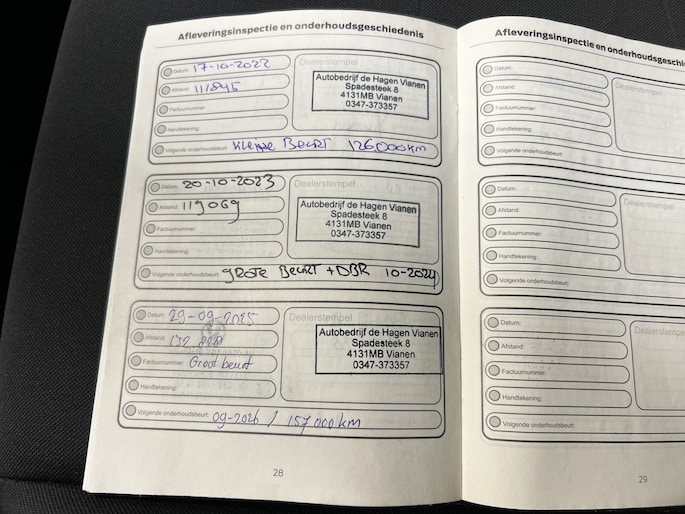 Afleveringsinspectie en onderhoudsgeschiedenis
Datum: 17-10-2022
Afstand: 111845
Factuurnummer:
Handtekening:
Volgende onderhoudsbeurt: Kleine Beurt 126000km
Dealerstempel
Autobedrijf de Hagen Vianen
Spadesteek 8
4131MB Vianen
0347-373357
Datum: 20-10-2023
Afstand: 119069
Factuurnummer:
Handtekening:
Volgende onderhoudsbeurt: grote Beurt + DBR 10-2024
Dealerstempel
Autobedrijf de Hagen Vianen
Spadesteek 8
4131MB Vianen
0347-373357
Datum: 29-09-2025
Afstand:
Factuurnummer: Groot beurt
Handtekening:
Volgende onderhoudsbeurt: 09-2026 / 157000 km
Dealerstempel
Autobedrijf de Hagen Vianen
Spadesteek 8
4131MB Vianen
0347-373357
28
Afleveringsinspectie en onderhoudsgeschi
Datum:
Afstand:
Factuurnummer:
Handtekening:
Volgende onderhoudsbeurt:
Dealerstempel
Datum:
Afstand:
Factuurnummer:
Handtekening:
Volgende onderhoudsbeurt:
Dealerstempel
Datum:
Afstand:
Factuurnummer:
Handtekening:
Volgende onderhoudsbeurt:
Dealerstempel
29